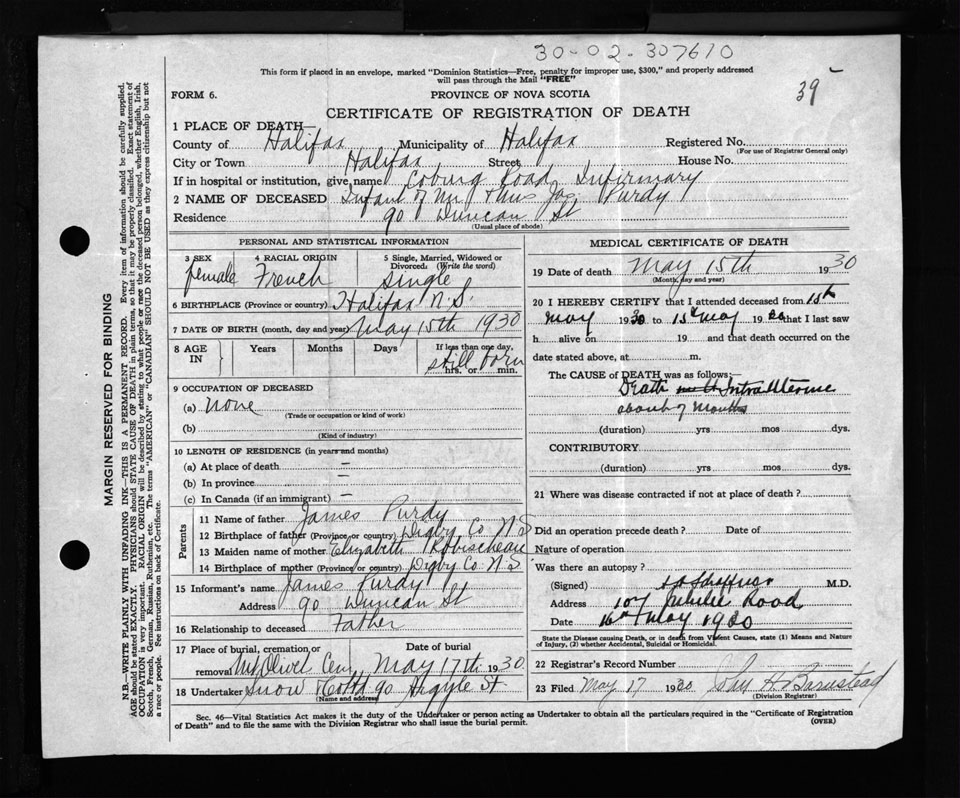 30-02-307610
39
This form if placed in an envelope, marked "Dominion Statistics—Free, penalty for improper use, $300," and properly addressed
will pass through the Mail "FREE"
FORM 6.
PROVINCE OF NOVA SCOTIA
CERTIFICATE OF REGISTRATION OF DEATH
1 PLACE OF DEATH—
County of Halifax Municipality of Halifax Registered No.
(For use of Registrar General only)
City or Town Halifax Street House No.
If in hospital or institution, give name Coburg Road Infirmary
2 NAME OF DECEASED Infant of Mr & Mrs Jas Purdy
Residence 90 Duncan St
(Usual place of abode)
PERSONAL AND STATISTICAL INFORMATION
3 SEX 4 RACIAL ORIGIN 5 Single, Married, Widowed or
Divorced. (Write the word)
female French Single
6 BIRTHPLACE (Province or country) Halifax N.S.
7 DATE OF BIRTH (month, day and year) May 15th 1930
8 AGE IN Years Months Days If less than one day,
still born
hrs. or min.
9 OCCUPATION OF DECEASED
(a) none
(Trade or occupation or kind of work)
(b)
(Kind of industry)
10 LENGTH OF RESIDENCE (in years and months)
(a) At place of death —
(b) In province —
(c) In Canada (if an immigrant) —
Parents
11 Name of father James Purdy
12 Birthplace of father (Province or country) Digby Co N S
13 Maiden name of mother Elizabeth Robischeau
14 Birthplace of mother (Province or country) Digby Co. N.S
15 Informant's name James Purdy
Address 90 Duncan St
16 Relationship to deceased Father
17 Place of burial, cremation or removal Mt Olivet Cem Date of burial May 17th 1930
18 Undertaker Snow & Co Ltd 90 Argyle St
(Name and address)
MEDICAL CERTIFICATE OF DEATH
19 Date of death May 15th 1930
(Month, day and year)
20 I HEREBY CERTIFY that I attended deceased from 15th
May 1930 to 15th May 1930 that I last saw
h alive on 19 and that death occurred on the
date stated above, at m.
The CAUSE of DEATH was as follows:—
Death Intra Uterine
about 7 Months
(duration) yrs mos dys.
CONTRIBUTORY
(duration) yrs mos dys.
21 Where was disease contracted if not at place of death?
Did an operation precede death? Date of
Nature of operation
Was there an autopsy?
(Signed) M.D.
Address 107 Jubilee Road
Date 16th May 1930
State the Disease causing Death, or in death from Violent Causes, state (1) Means and Nature
of Injury, (2) whether Accidental, Suicidal or Homicidal.
22 Registrar's Record Number
23 Filed May 17 1930 John H Barnstead
(Division Registrar)
Sec. 46—Vital Statistics Act makes it the duty of the Undertaker or person acting as Undertaker to obtain all the particulars required in the "Certificate of Registration
of Death" and to file the same with the Division Registrar who shall issue the burial permit.
(OVER)
MARGIN RESERVED FOR BINDING
N.B.—WRITE PLAINLY WITH UNFADING INK—THIS IS A PERMANENT RECORD. Every item of information should be carefully supplied.
AGE should be stated EXACTLY. PHYSICIANS should STATE CAUSE OF DEATH in plain terms, so that it may be properly classified. Exact statement of
OCCUPATION is very important. RACIAL ORIGIN will be described by stating to what people or race the deceased person belonged, whether English, Irish,
Scotch, French, German, Russian, Ruthenian, etc. The terms "AMERICAN" or "CANADIAN" SHOULD NOT BE USED as they express citizenship but not
a race or people. See instructions on back of Certificate.